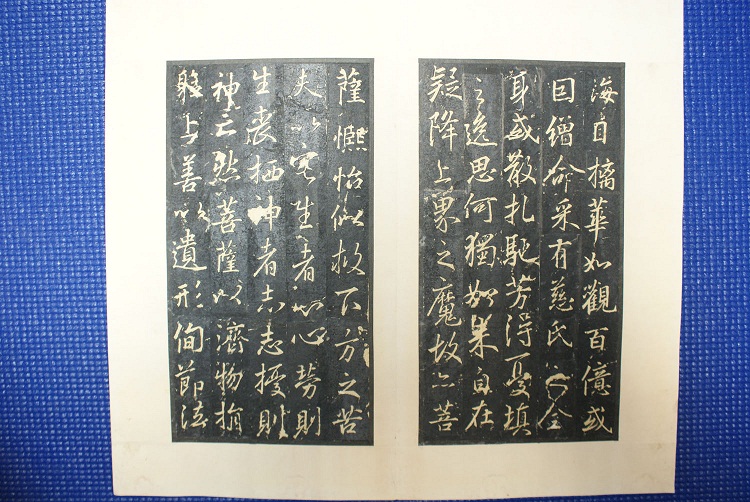 海自摛華如觀百億或
因繒命采有慈氏之全
身或散扎馳芳得憂填
之逸思何獨如來自在
疑降上界之魔故亦菩
薩熈怡似救下方之苦
夫以宅生者心心勞則
生喪栖神者志志擾則
神亡然菩薩以濟物捐
躯上善以遺形徇節法